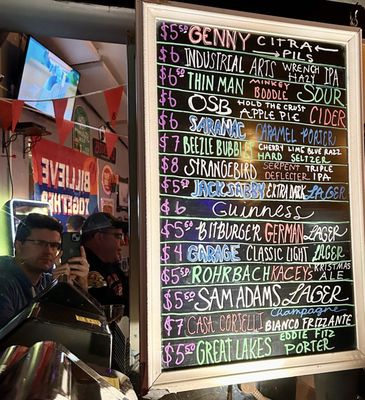 $5.50 GENNY CITRA PILS
$6 INDUSTRIAL ARTS WRENCH HAZY IPA
$6.50 THIN MAN MINKEY BOODLE SOUR
$6 OSB HOLD THE CRUST APPLE PIE CIDER
$6 SARANAC CARAMEL PORTER
$7 BEEZLE BUBBLES CHERRY LIME BLUE RAZZ HARD SELTZER
$8 STRANGEBIRD SERPENT DEFLECTER TRIPLE IPA
$5.50 JACK'S ABBY EXTRA DARK LAGER
$6 GUINNESS
$5 BITBURGER GERMAN LAGER
$4 GARAGE CLASSIC LIGHT LAGER
$5.50 ROHRBACH KACEY'S KRISTMAS ALE
$5.50 SAM ADAMS LAGER
$7 CASA Champagne BIANCO FRIZZANTE
$5.50 GREAT LAKES EDDIE FITZ PORTER
BILLIEVE
TOGETHER